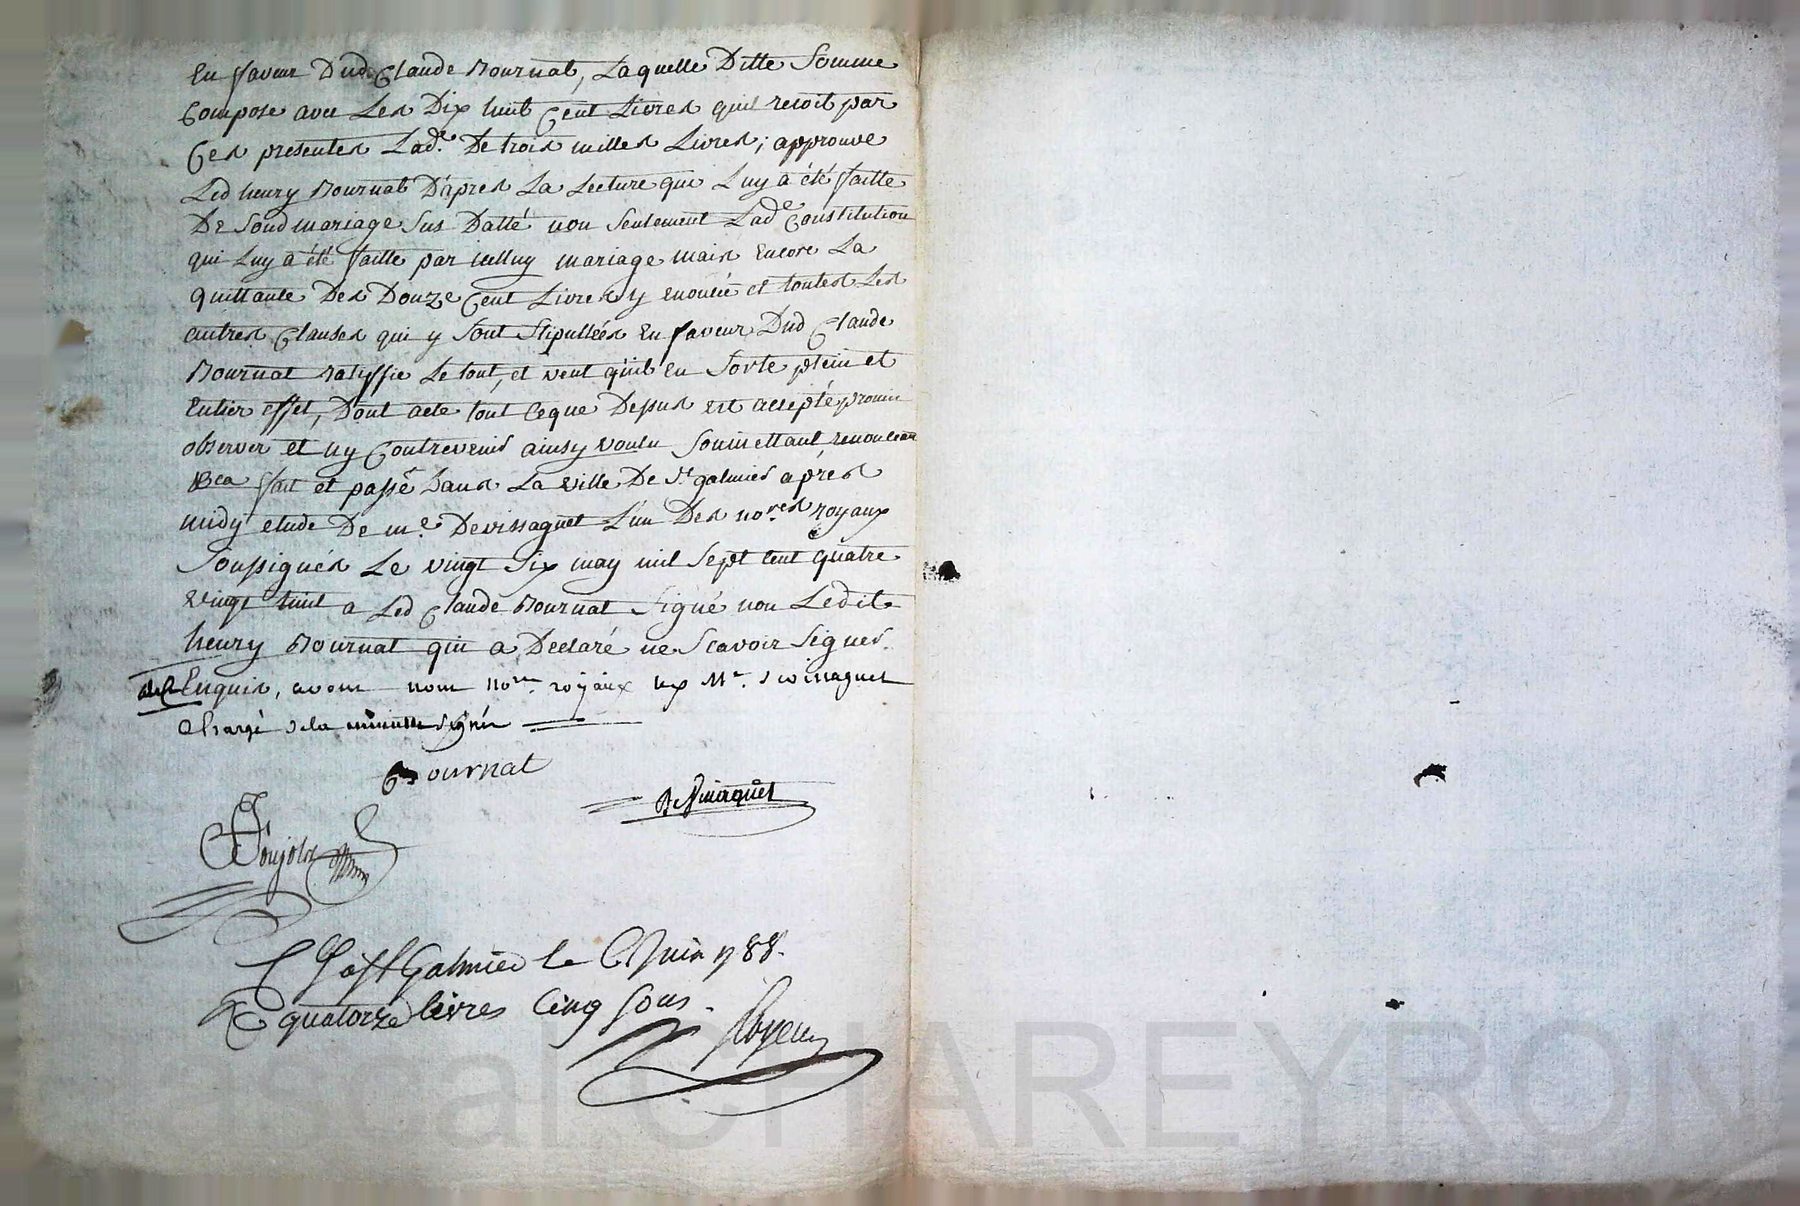 En faveur Dud. Claude Bournat, Laquelle Ditte Somme
Compose avec Les Dix huit Cent Livres quil recoit par
Ces presentes Lad.e De trois milles Livres; approuve
Led henry Bournat D'apres La Lecture qui Luy a été faitte
De Soud mariage Sus Datté non Seulement Lad.e Constitution
qui Luy a été faitte par icelluy mariage mais Encore La
quittance Des Douze Cent Livres y enoncée et toutes Les
autres Clauses qui y Sont Stipullées En faveur Dud Claude
Bournat Ratiffie Le tout, et veut quil En Sorte plein et
Entier effet, Dont acte tout Ceque Dessus est accepté promis
observer et ny Contrevenir ainsy voulu Soumettant renoncant
fait et passé Dans La ville De St galmier apres
midy etude De me Devissaguet L'un Des no.res royaux
Soussignés Le vingt Six may mil Sept Cent quatre
vingt huit a Led Claude Bournat Signé non Ledit
henry Bournat qui a Declaré ne Scavoir Signer
Enquis, avons nous no.res royaux Mr. Devissaguet
Chargé de la minute signés
Bournat
Devissaguet
Poujol
C à St Galmier le 6 Juin 1788.
R quatorze livres Cinq Sous.
Pascal CHAREYRON